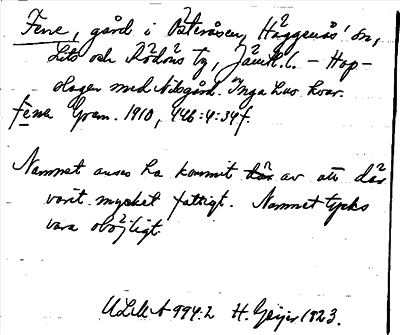 Fene, gård i Österåsen, Häggenås' sn,
Lits och Rödöns tg, Jämtl. l. – Hop-
slagen med Nilsgård. Inga hus kvar.
fena Gram. 1910, 446:4:34f.
Namnet anses ha kommit här av att där
varit mycket fattigt. Namnet tycks
vara oböjligt.
ULMA 994:2 H. Geijer 1923.